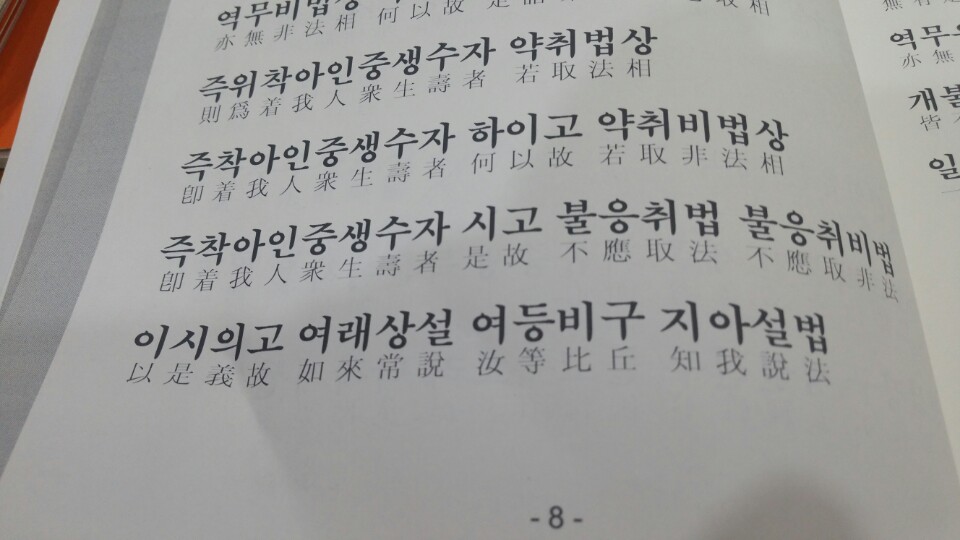 역무비법상
亦無非法相 何以故 是 取相
즉위착아인중생수자 약취법상
則爲着我人衆生壽者 若取法相
즉착아인중생수자 하이고 약취비법상
卽着我人衆生壽者 何以故 若取非法相
즉착아인중생수자 시고 불응취법 불응취비법
卽着我人衆生壽者 是故 不應取法 不應取非法
이시의고 여래상설 여등비구 지아설법
以是義故 如來常說 汝等比丘 知我說法
- 8 -
역무
亦無
개불
皆
일